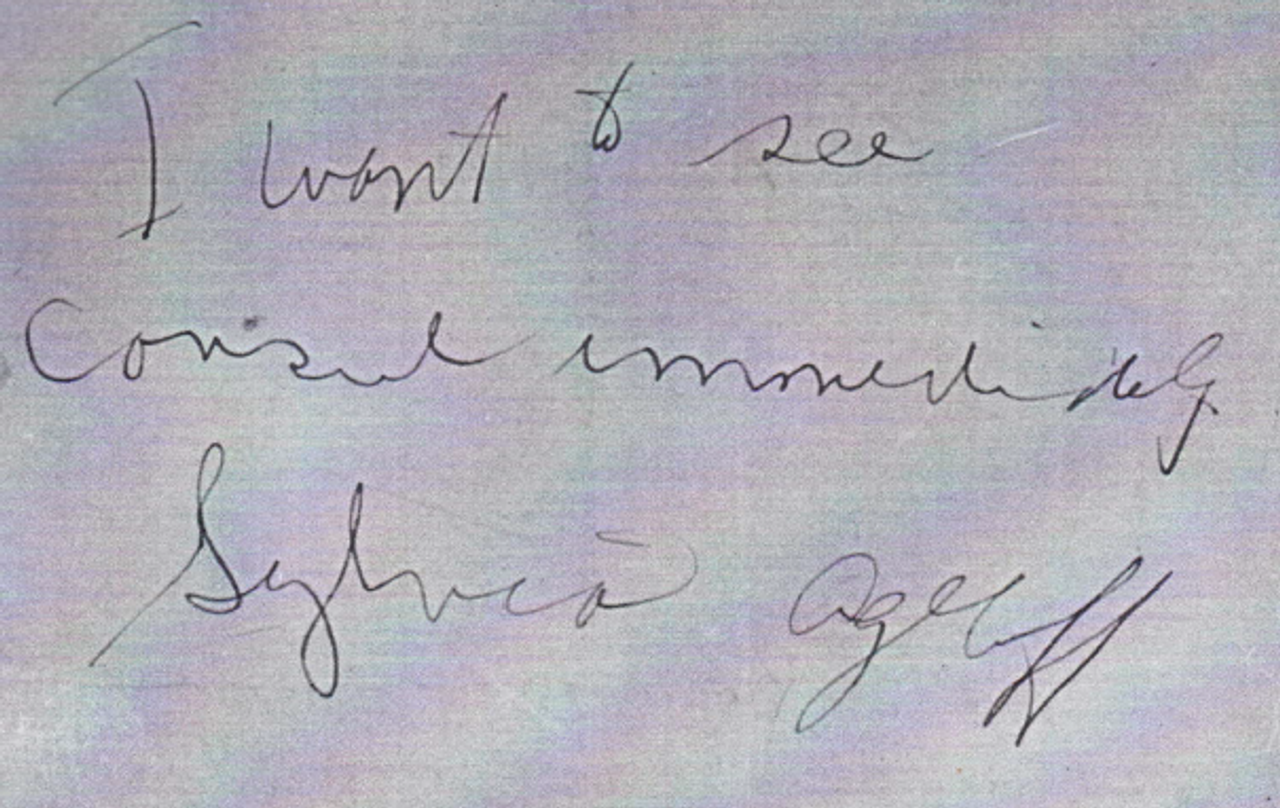 I want to see
Consul immediately
Sylvia Ageloff